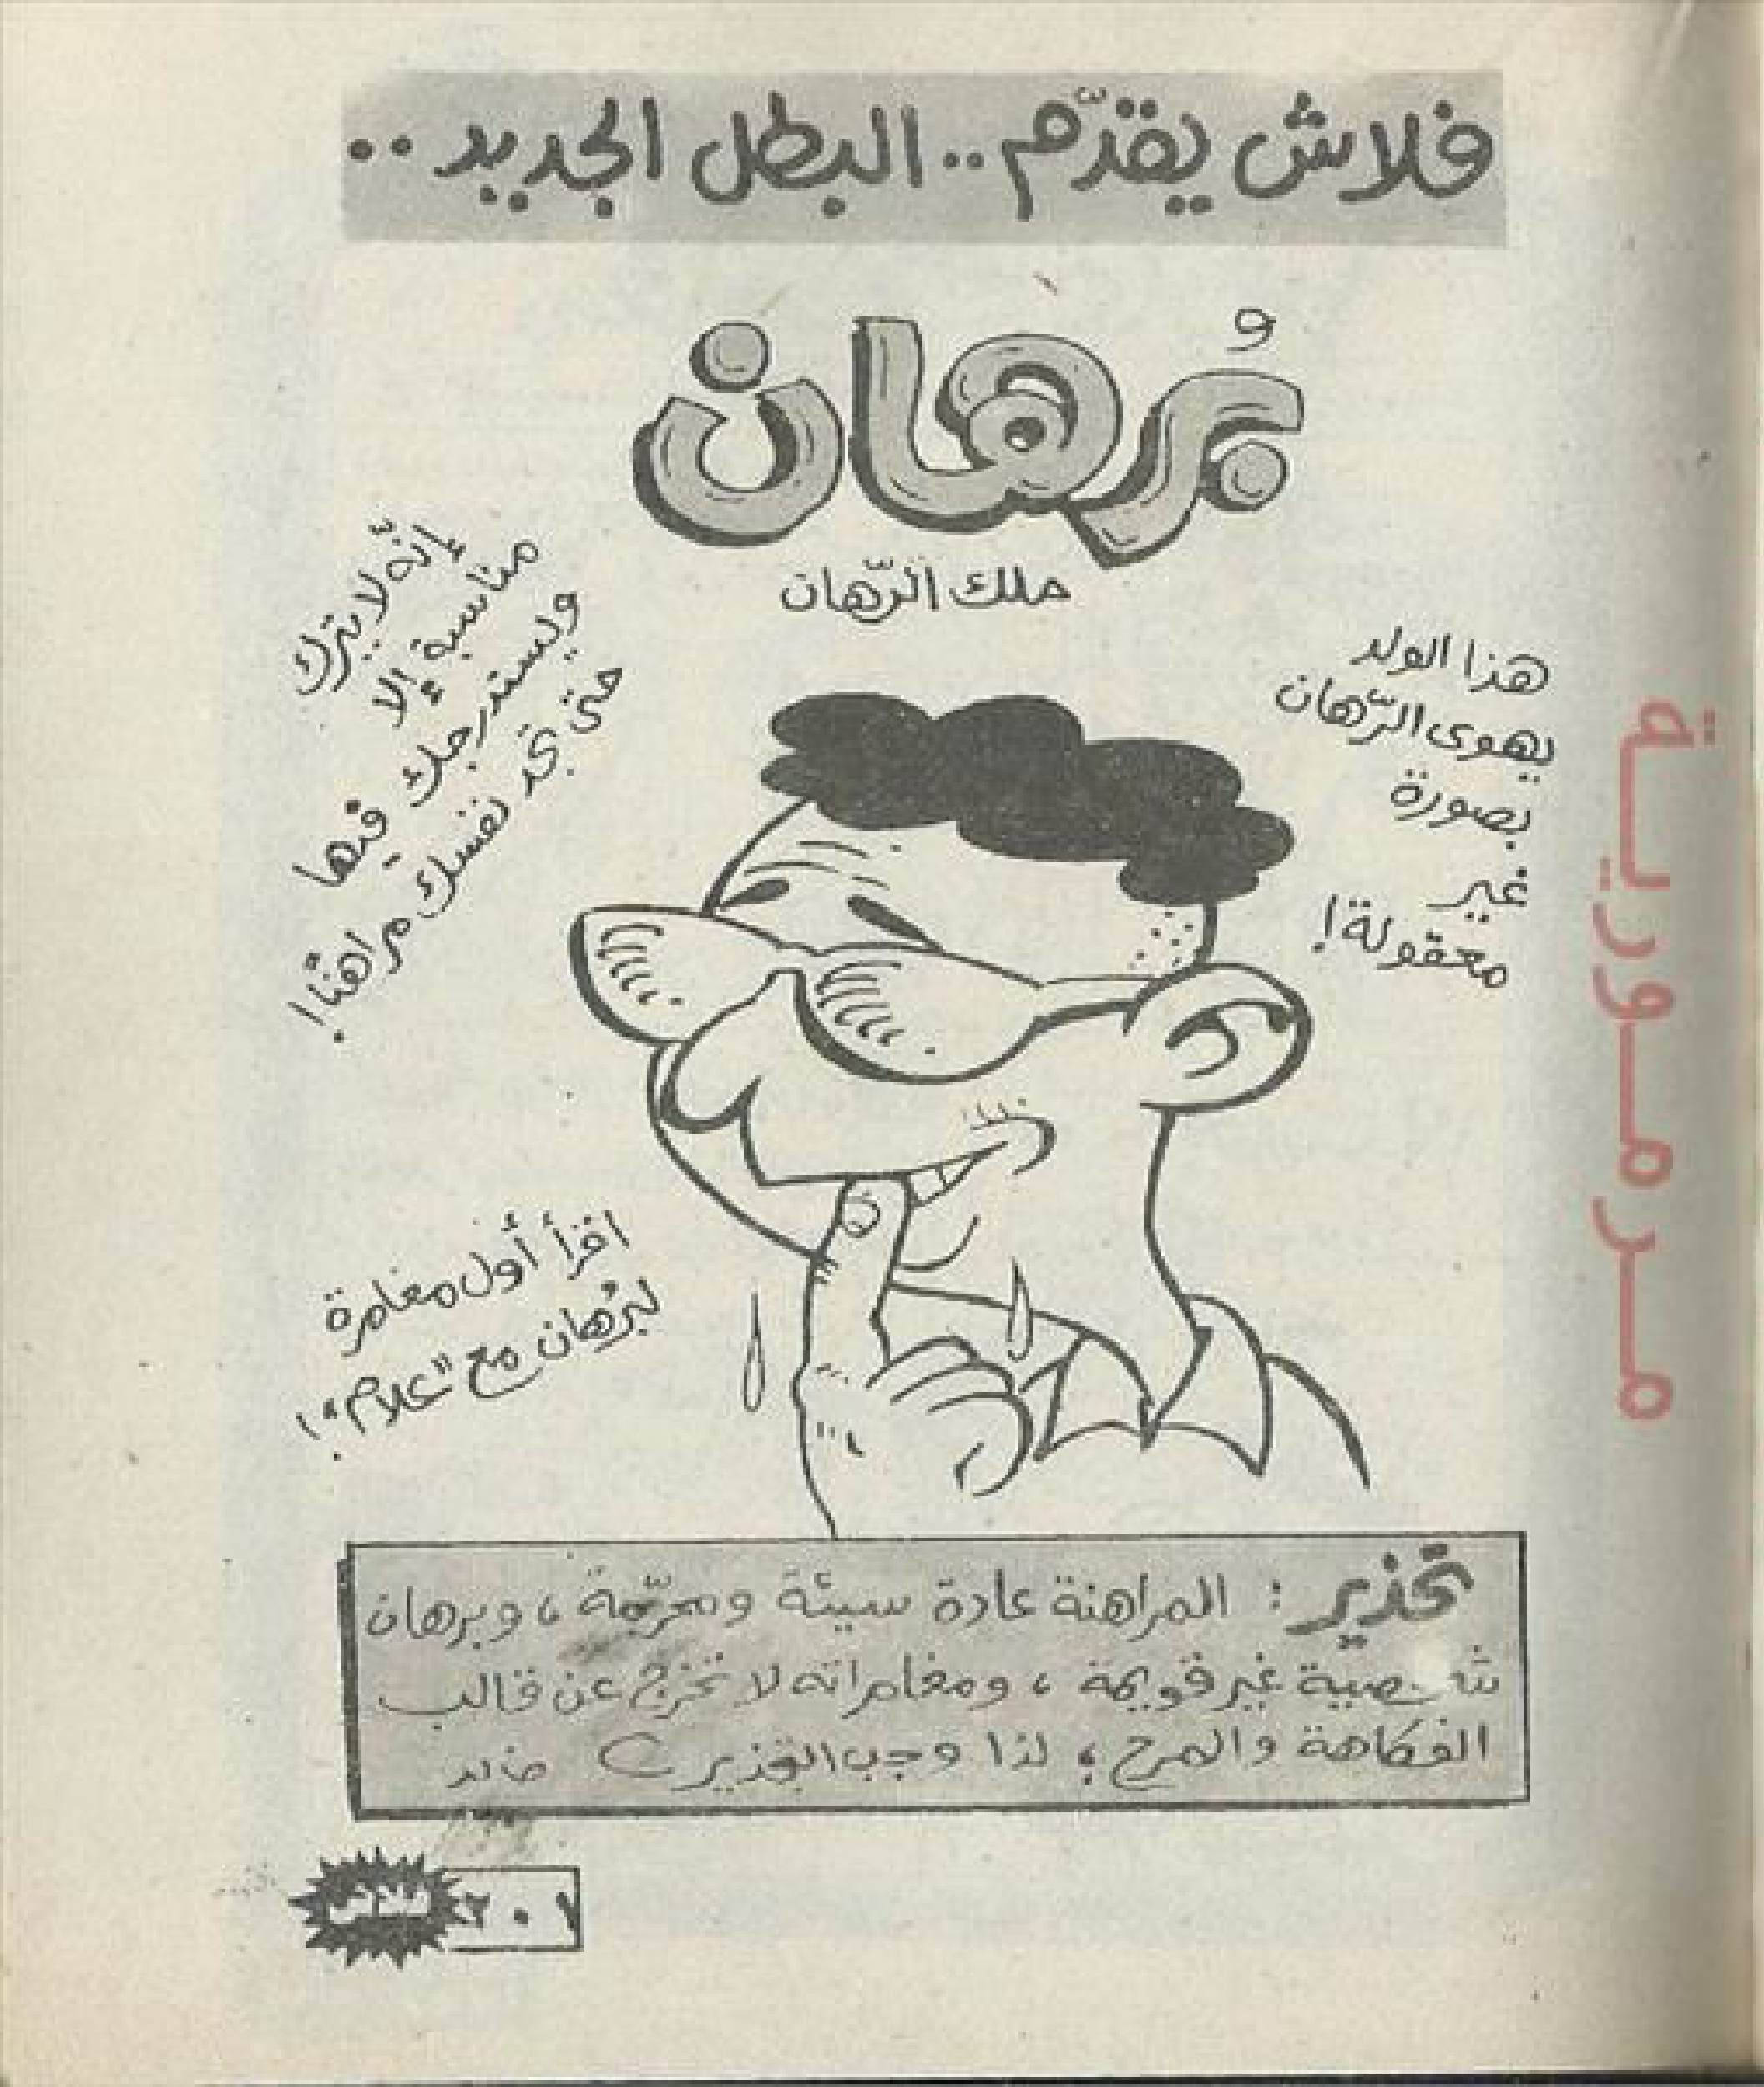 فلاش يقدّم.. البطل الجديد..
بُرهان
ملك الرّهان
هذا الولد
يهوى الرّهان
بصورة
غير
معقولة!
إنّه لا يترك
مناسبة إلا
ويستدرجك فيها
حتى تجد نفسك مراهنًا!
اقرأ أول مغامرة
لبُرهان مع "علام"!
تحذير: المراهنة عادة سيئة ومحرّمة، وبرهان
شخصية غير قويمة، ومغامراته لا تخرج عن قالب
الفكاهة والمرح؛ لذا وجب التحذير خالد
فلاش
مرمورية